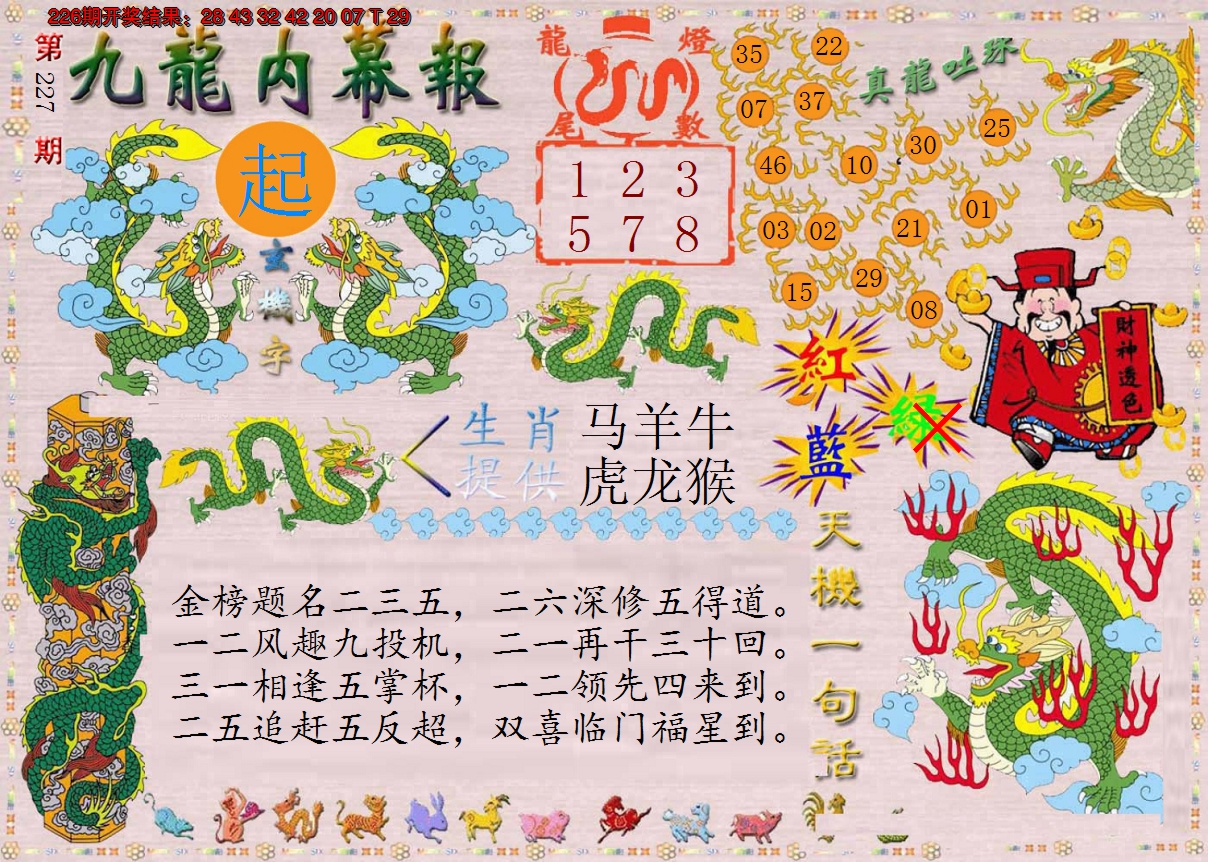 226期开奖结果：28 43 32 42 20 07 T 29
第227期
九龍内幕報
起
玄機字
龍燈
尾數
1 2 3
5 7 8
真龍吐珠
35
22
07
37
25
30
46
10
01
03
02
21
29
15
08
紅
綠
藍
財神透色
生肖 马羊牛
提供 虎龙猴
天機一句話
金榜题名二三五，二六深修五得道。
一二风趣九投机，二一再干三十回。
三一相逢五掌杯，一二领先四来到。
二五追赶五反超，双喜临门福星到。